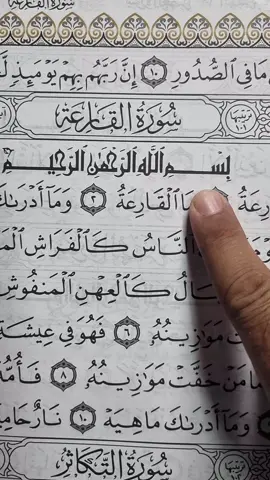 سورة العاديات
مَا فِي ٱلصُّدُورِ ١٠ إِنَّ رَبَّهُم بِهِمۡ يَوۡمَئِذٖ
سُورَةُ القَارِعَةِ
بِسۡمِ ٱللَّهِ ٱلرَّحۡمَٰنِ ٱلرَّحِيمِ
مَا ٱلۡقَارِعَةُ ٢ وَمَآ أَدۡرَىٰكَ
ٱلنَّاسُ كَٱلۡفَرَاشِ
كَٱلۡعِهۡنِ ٱلۡمَنفُوشِ
مَوَٰزِينُهُۥ ٦ فَهُوَ فِي عِيشَةٖ
مَنۡ خَفَّتۡ مَوَٰزِينُهُۥ ٨ فَأُمُّهُۥ
وَمَآ أَدۡرَىٰكَ مَا هِيَهۡ ١٠ نَارٌ حَامِيَةُۢ
سُورَةُ التَّكَاثُرِ